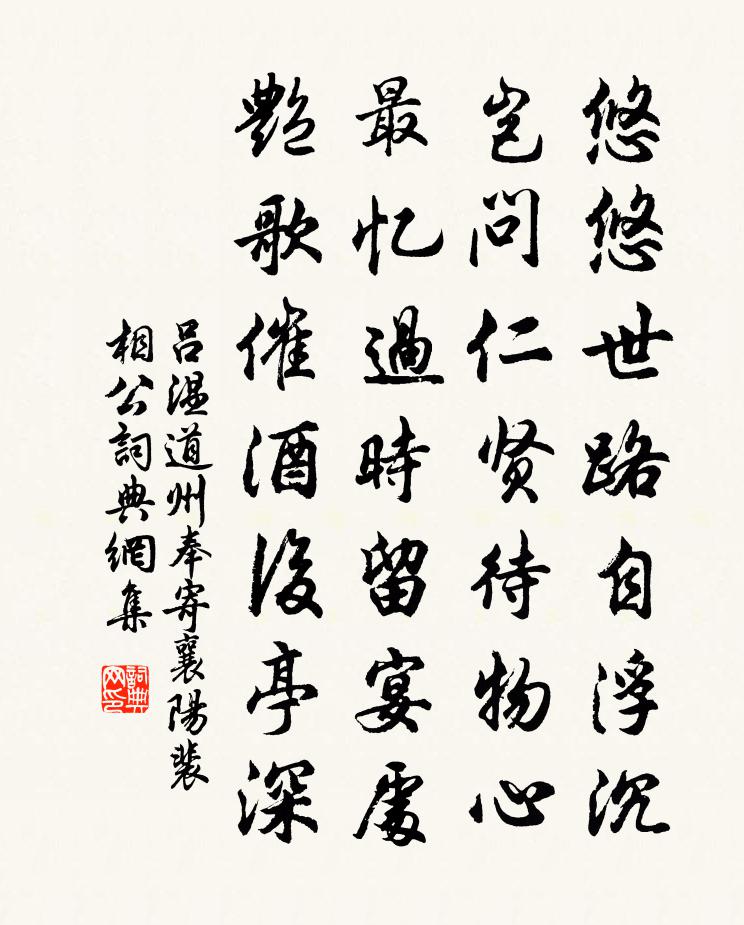 悠悠世路自浮沉
岂问仁贤待物心
最忆過時留宴處
艷歌催酒後亭深
吕温道州奉寄襄陽裴
相公詞典網集
詞典网印